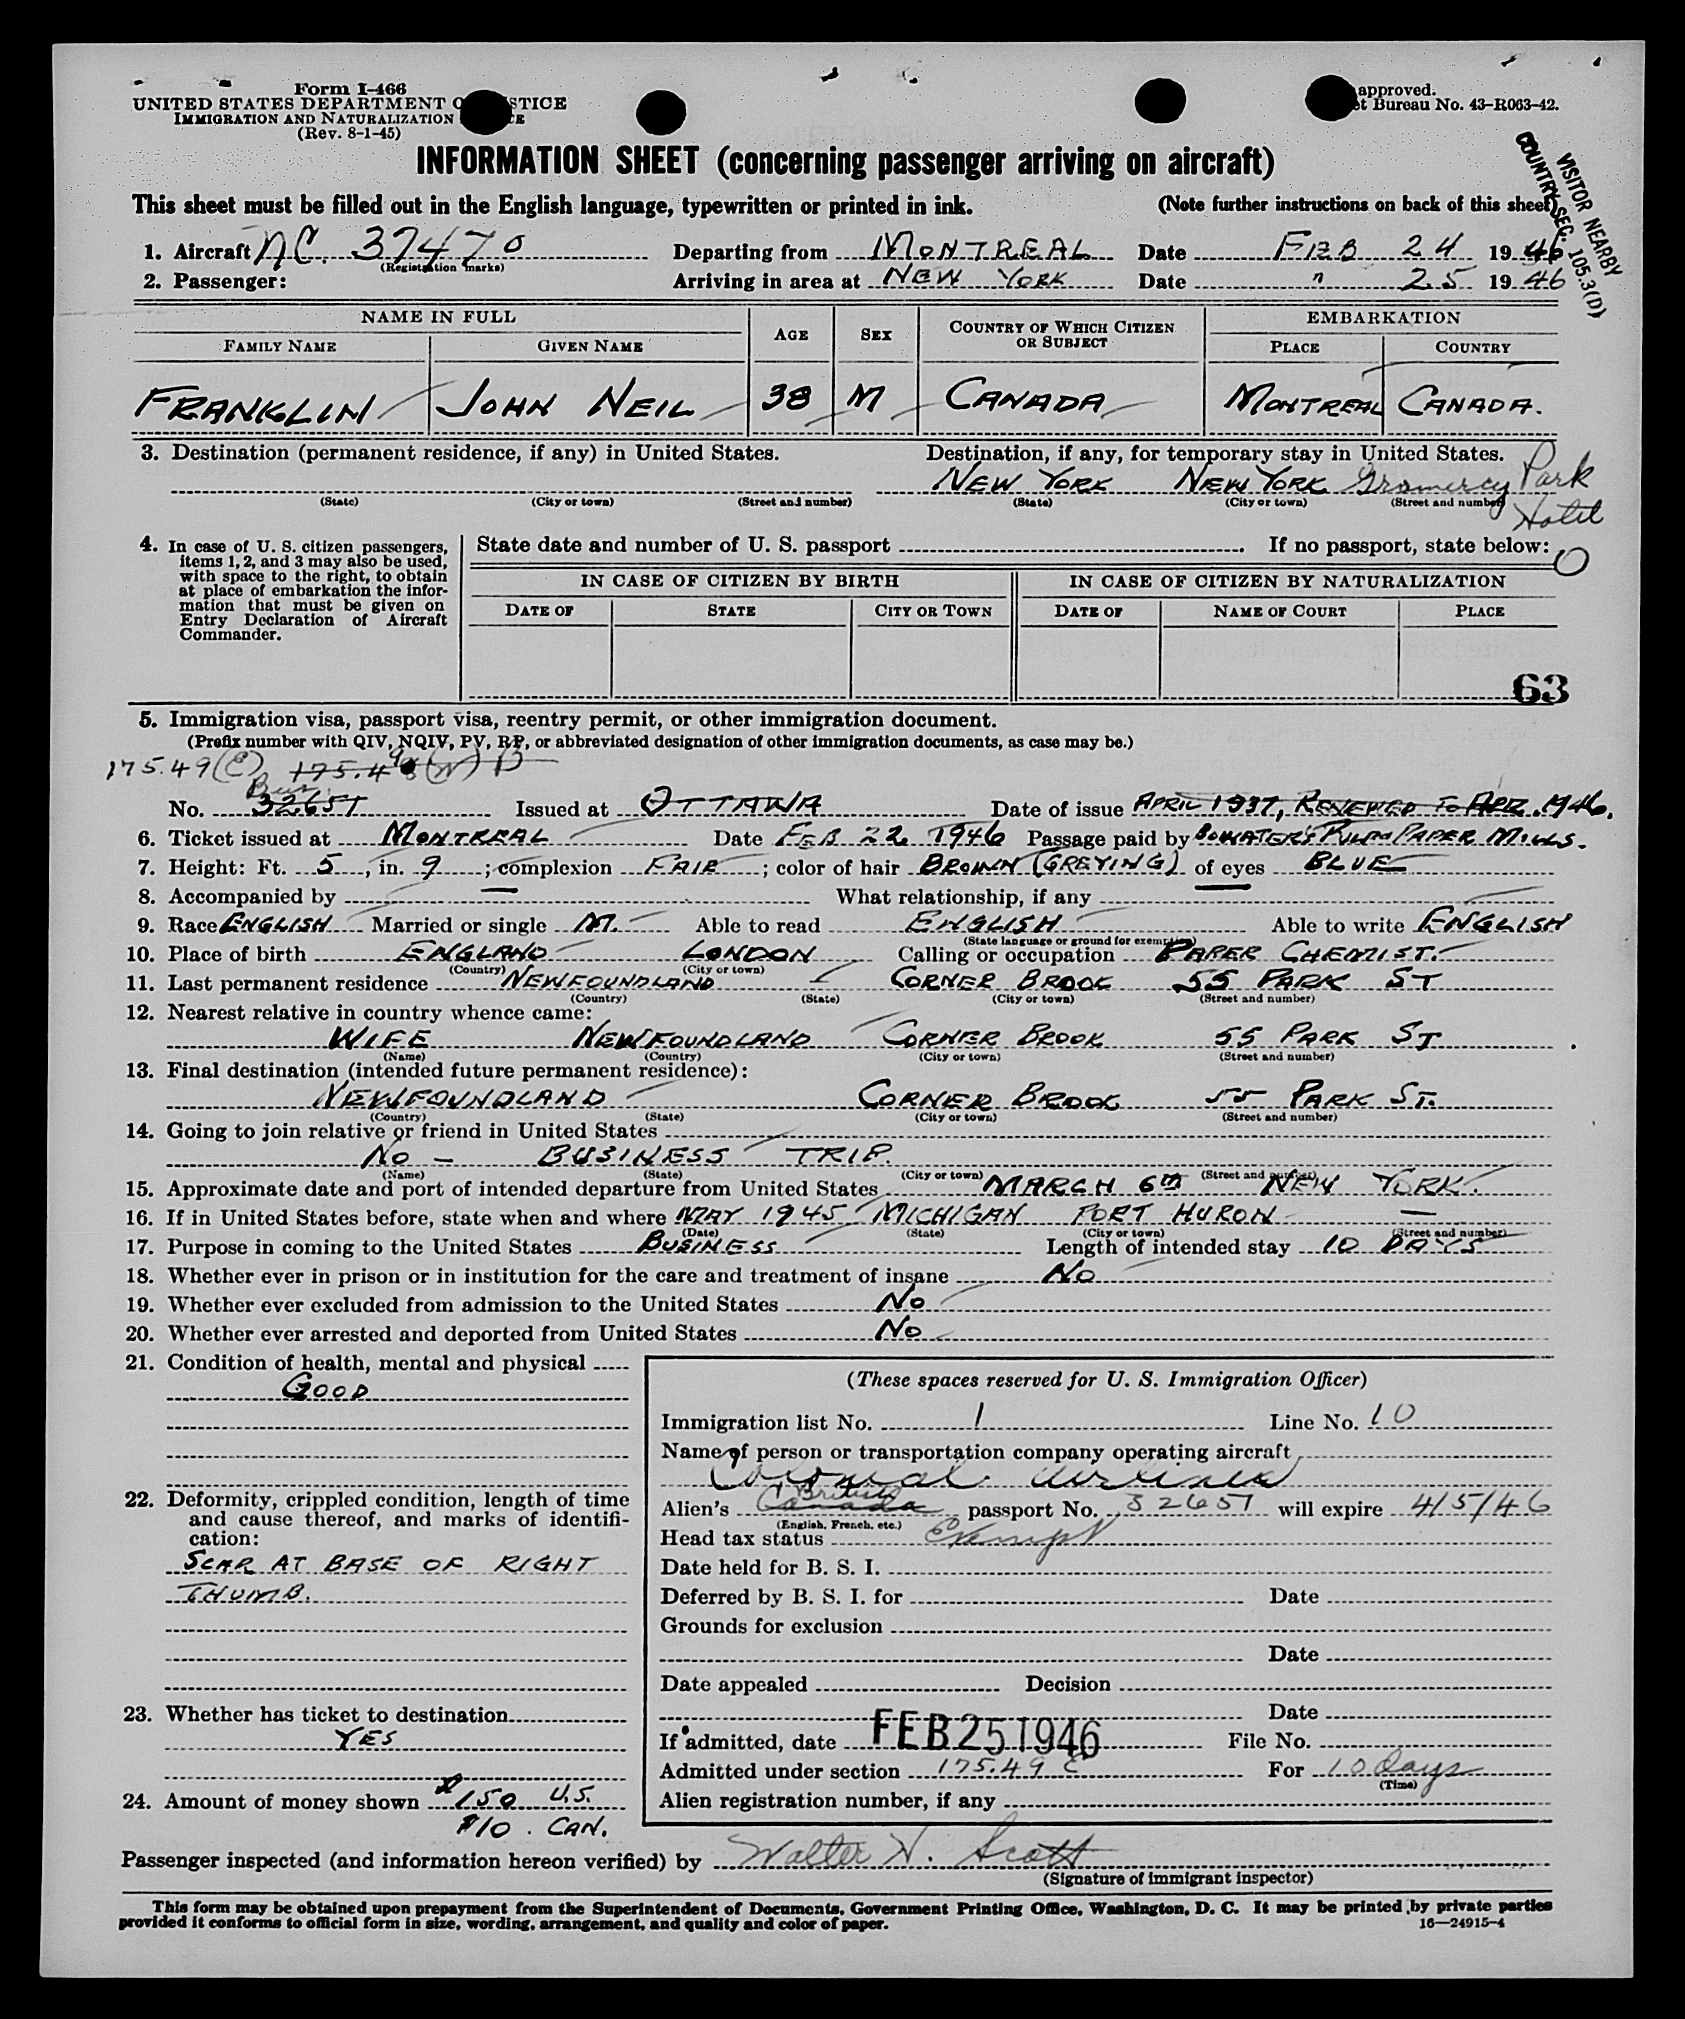 Form I-466
UNITED STATES DEPARTMENT O STICE
IMMIGRATION AND NATURALIZATION
(Rev. 8-1-45)
approved.
t Bureau No. 43-R063-42.
INFORMATION SHEET (concerning passenger arriving on aircraft)
This sheet must be filled out in the English language, typewritten or printed in ink. (Note further instructions on back of this sheet)
VISITOR NEARBY
COUNTRY SEC. 105.3(D)
1. Aircraft NC. 37470 Departing from MONTREAL Date FEB 24 1946
(Registration marks)
2. Passenger: Arriving in area at NEW YORK Date " 25 1946
NAME IN FULL AGE SEX COUNTRY OF WHICH CITIZEN OR SUBJECT EMBARKATION
FAMILY NAME GIVEN NAME PLACE COUNTRY
FRANKLIN JOHN NEIL 38 M CANADA MONTREAL CANADA.
3. Destination (permanent residence, if any) in United States. Destination, if any, for temporary stay in United States.
NEW YORK NEW YORK Gramercy Park Hotel
(State) (City or town) (Street and number) (State) (City or town) (Street and number)
4. In case of U. S. citizen passengers, items 1, 2, and 3 may also be used, with space to the right, to obtain at place of embarkation the information that must be given on Entry Declaration of Aircraft Commander.
State date and number of U. S. passport . If no passport, state below:
IN CASE OF CITIZEN BY BIRTH IN CASE OF CITIZEN BY NATURALIZATION
DATE OF STATE CITY OR TOWN DATE OF NAME OF COURT PLACE
63
5. Immigration visa, passport visa, reentry permit, or other immigration document.
(Prefix number with QIV, NQIV, PV, RP, or abbreviated designation of other immigration documents, as case may be.)
175.49(E)
No. 32651 Issued at OTTAWA Date of issue APRIL 1937, RENEWED TO APR. 1946.
6. Ticket issued at MONTREAL Date FEB 22 1946 Passage paid by BOWATER'S PULP PAPER MILLS.
7. Height: Ft. 5, in. 9; complexion FAIR; color of hair BROWN (GREYING) of eyes BLUE
8. Accompanied by — What relationship, if any —
9. Race ENGLISH Married or single M. Able to read ENGLISH Able to write ENGLISH
(State language or ground for exemption)
10. Place of birth ENGLAND LONDON Calling or occupation PAPER CHEMIST.
(Country) (City or town)
11. Last permanent residence NEWFOUNDLAND CORNER BROOK 55 PARK ST
(Country) (State) (City or town) (Street and number)
12. Nearest relative in country whence came:
WIFE NEWFOUNDLAND CORNER BROOK 55 PARK ST
(Name) (Country) (City or town) (Street and number)
13. Final destination (intended future permanent residence):
NEWFOUNDLAND CORNER BROOK 55 PARK ST.
(Country) (State) (City or town) (Street and number)
14. Going to join relative or friend in United States
NO - BUSINESS TRIP.
(Name) (State) (City or town) (Street and number)
15. Approximate date and port of intended departure from United States MARCH 6TH NEW YORK.
16. If in United States before, state when and where MAY 1945 MICHIGAN PORT HURON —
(Date) (State) (City or town) (Street and number)
17. Purpose in coming to the United States BUSINESS Length of intended stay 10 DAYS
18. Whether ever in prison or in institution for the care and treatment of insane NO
19. Whether ever excluded from admission to the United States NO
20. Whether ever arrested and deported from United States NO
21. Condition of health, mental and physical
GOOD
22. Deformity, crippled condition, length of time and cause thereof, and marks of identification:
SCAR AT BASE OF RIGHT
THUMB.
23. Whether has ticket to destination
YES
24. Amount of money shown $150 U.S.
$10. CAN.
(These spaces reserved for U. S. Immigration Officer)
Immigration list No. 1 Line No. 10
Name of person or transportation company operating aircraft
Colonial Airlines
Alien's Canada British passport No. 32651 will expire 4/5/46
(English, French, etc.)
Head tax status Exempt
Date held for B. S. I.
Deferred by B. S. I. for Date
Grounds for exclusion
Date
Date appealed Decision
Date
If admitted, date FEB 25 1946 File No.
Admitted under section 175.49 E For 10 days
(Time)
Alien registration number, if any
Passenger inspected (and information hereon verified) by Walter W. Scott
(Signature of immigrant inspector)
This form may be obtained upon prepayment from the Superintendent of Documents, Government Printing Office, Washington, D. C. It may be printed by private parties
provided it conforms to official form in size, wording, arrangement, and quality and color of paper. 16—24915-4